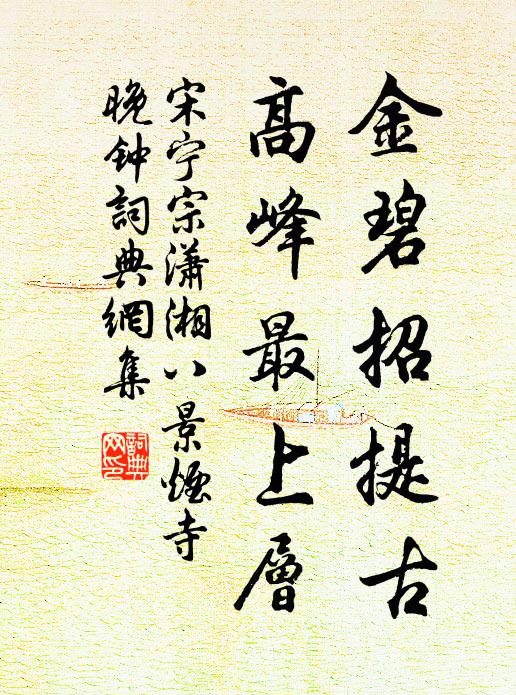 金碧招提古
高峰最上層
宋宁宗瀟湘八景煙寺
晚钟詞典網集
詞典网印